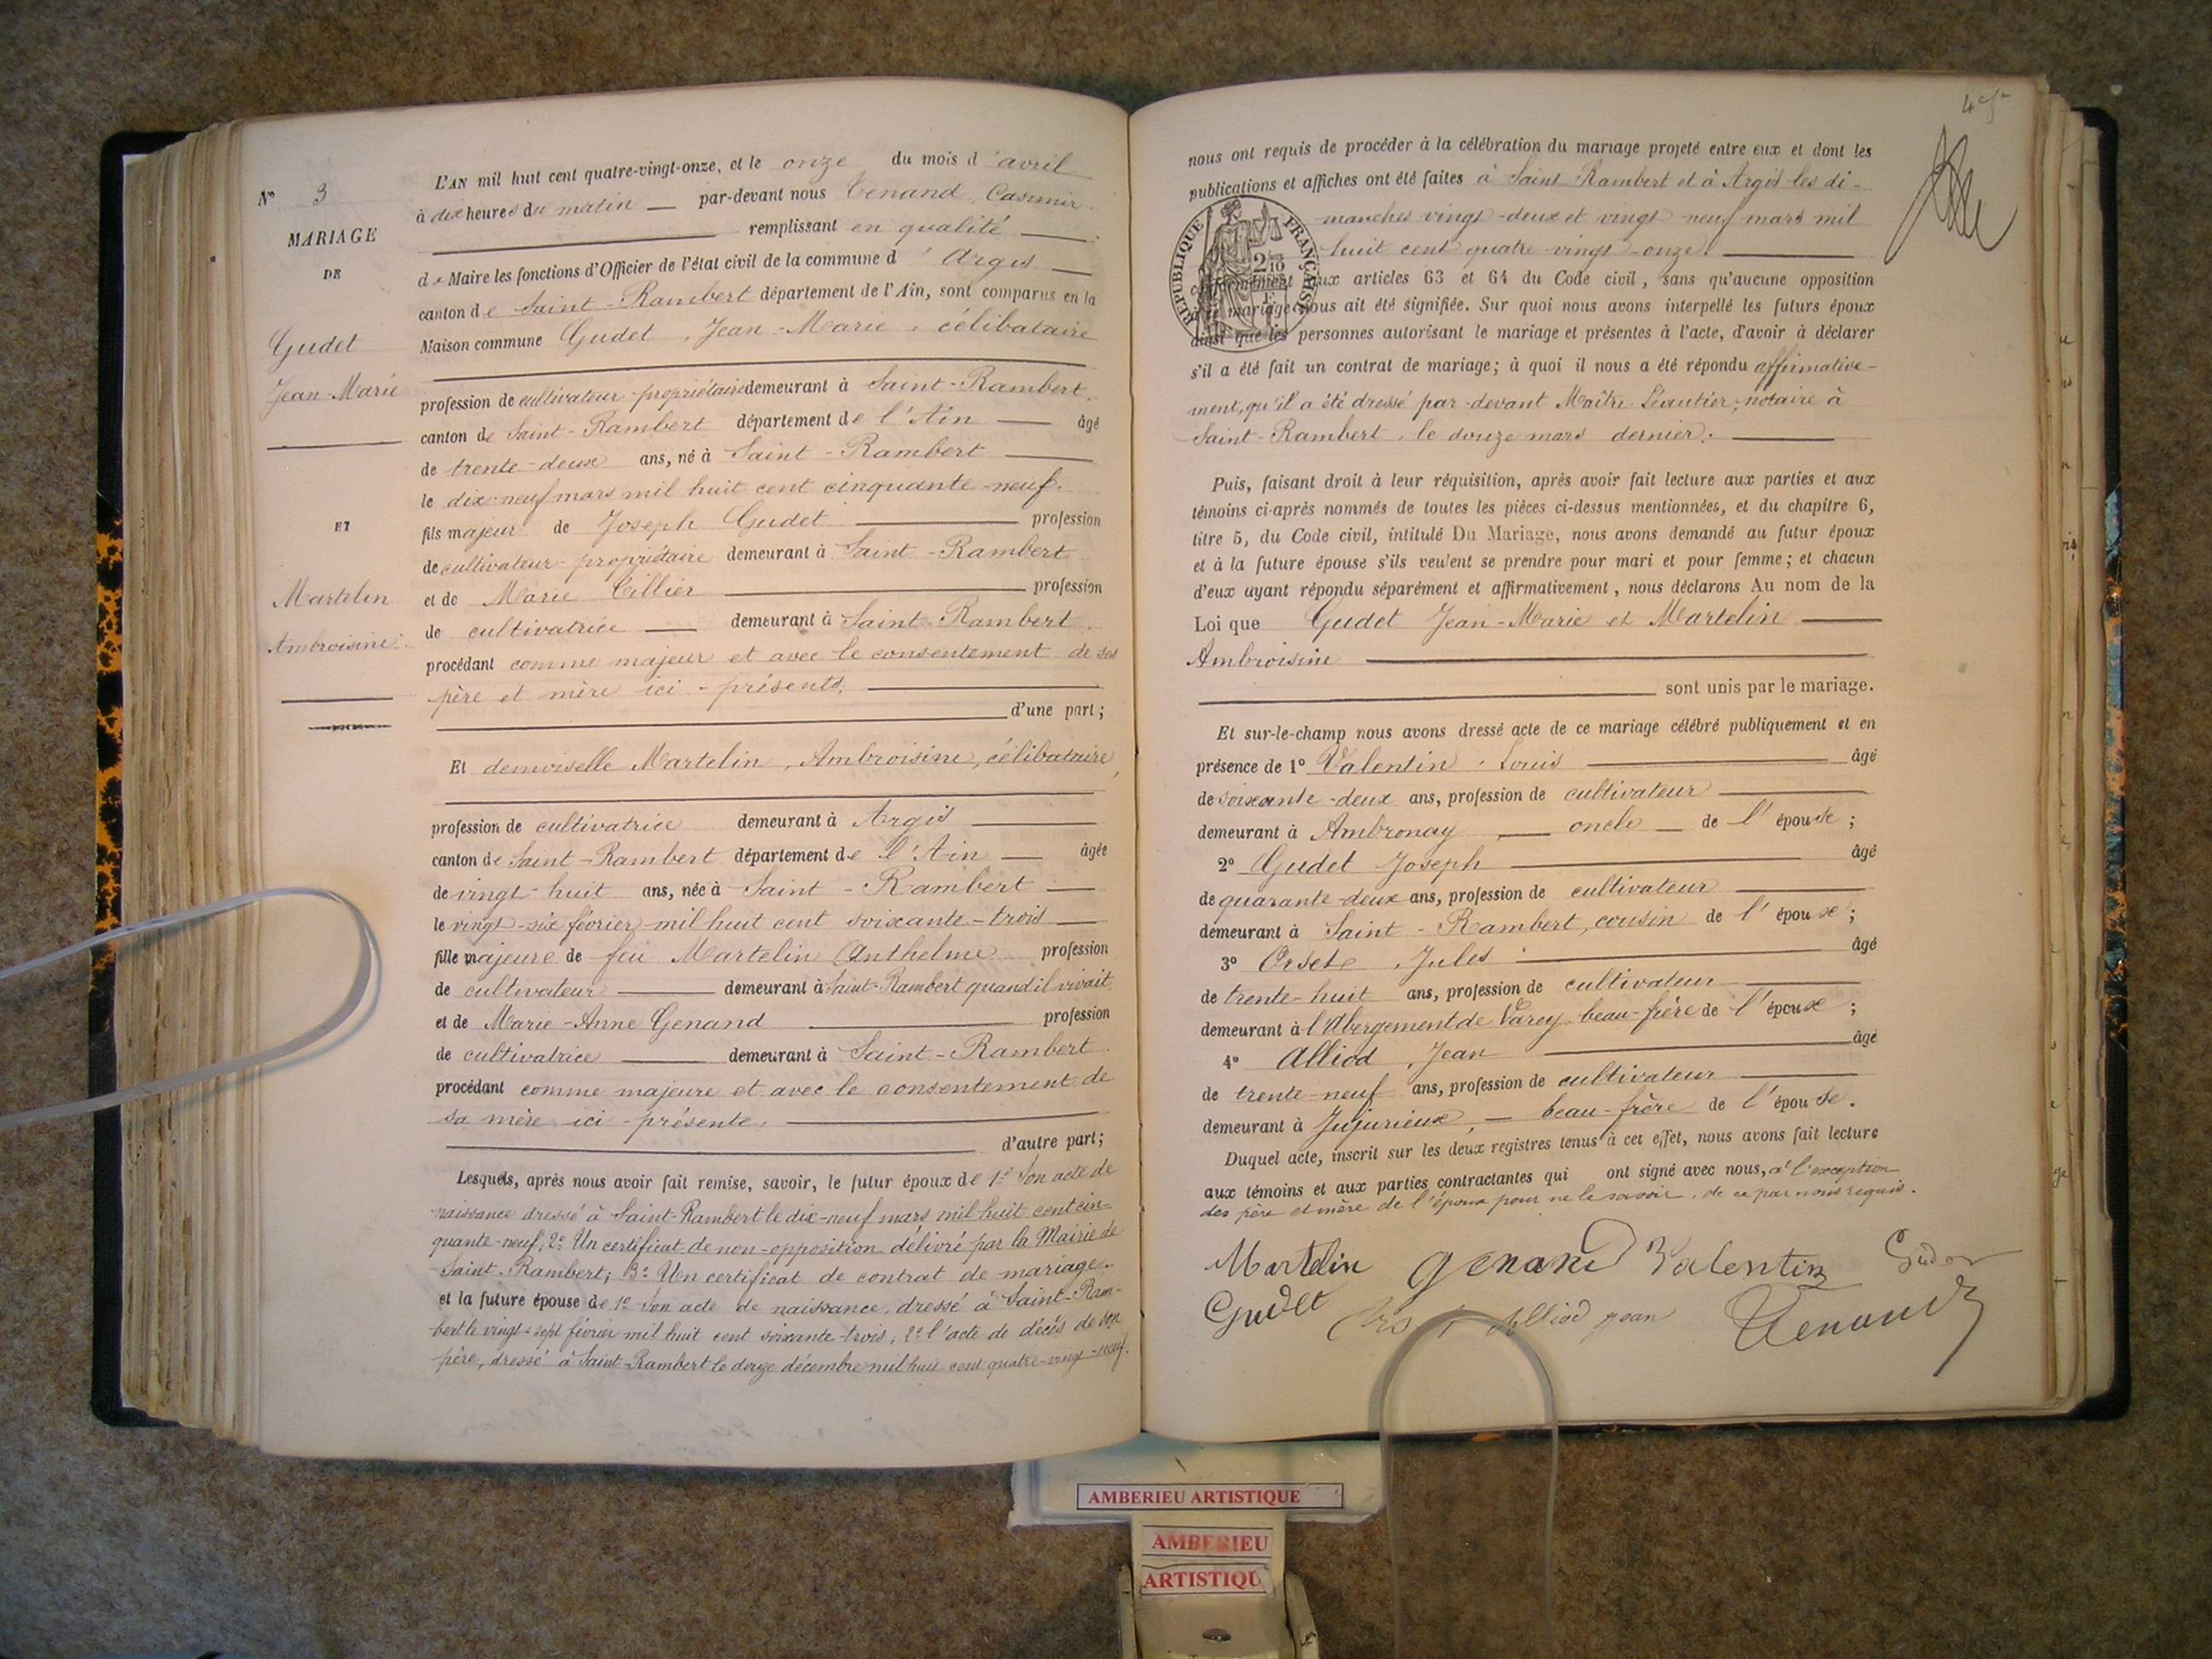 N° 3
MARIAGE
DE
Gudet
Jean-Marie
ET
Martelin
Ambroisine
L'AN mil huit cent quatre-vingt-onze, et le onze du mois d'avril
à dix heures du matin par-devant nous Tenand, Casimir
remplissant en qualité
de Maire les fonctions d'Officier de l'état civil de la commune d'Argis
canton de Saint-Rambert département de l'Ain, sont comparus en la
Maison commune Gudet, Jean-Marie, célibataire
profession de cultivateur-propriétaire demeurant à Saint-Rambert,
canton de Saint-Rambert département de l'Ain âgé
de trente-deux ans, né à Saint-Rambert
le dix-neuf mars mil huit cent cinquante-neuf.
fils majeur de Joseph Gudet profession
de cultivateur-propriétaire demeurant à Saint-Rambert
et de Marie Tillier profession
de cultivatrice demeurant à Saint-Rambert.
procédant comme majeur et avec le consentement de ses
père et mère ici-présents,
d'une part;
Et demoiselle Martelin, Ambroisine, célibataire,
profession de cultivatrice demeurant à Argis
canton de Saint-Rambert département de l'Ain âgée
de vingt-huit ans, née à Saint-Rambert
le vingt-six février mil huit cent soixante-trois
fille majeure de feu Martelin Anthelme profession
de cultivateur demeurant à Saint-Rambert quand il vivait
et de Marie-Anne Genand profession
de cultivatrice demeurant à Saint-Rambert
procédant comme majeure et avec le consentement de
sa mère ici-présente,
d'autre part;
Lesquels, après nous avoir fait remise, savoir, le futur époux de 1° Son acte de
naissance dressé à Saint-Rambert le dix-neuf mars mil huit cent cin-
quante-neuf; 2° Un certificat de non-opposition délivré par la Mairie de
Saint-Rambert; 3° Un certificat de contrat de mariage.
et la future épouse de 1° Son acte de naissance, dressé à Saint-Ram-
bert le vingt-sept février mil huit cent soixante-trois; 2° l'acte de décès de son
père, dressé à Saint-Rambert le douze décembre mil huit cent quatre-vingt-neuf.
nous ont requis de procéder à la célébration du mariage projeté entre eux et dont les
publications et affiches ont été faites à Saint Rambert et à Argis les di-
manches vingt-deux et vingt-neuf mars mil
huit cent quatre-vingt-onze.
RÉPUBLIQUE FRANÇAISE
conformément aux articles 63 et 64 du Code civil, sans qu'aucune opposition
à ce mariage nous ait été signifiée. Sur quoi nous avons interpellé les futurs époux
ainsi que les personnes autorisant le mariage et présentes à l'acte, d'avoir à déclarer
s'il a été fait un contrat de mariage; à quoi il nous a été répondu affirmative-
ment, qu'il a été dressé par-devant Maître Léautier, notaire à
Saint-Rambert, le douze mars dernier.
Puis, faisant droit à leur réquisition, après avoir fait lecture aux parties et aux
témoins ci-après nommés de toutes les pièces ci-dessus mentionnées, et du chapitre 6,
titre 5, du Code civil, intitulé Du Mariage, nous avons demandé au futur époux
et à la future épouse s'ils veulent se prendre pour mari et pour femme; et chacun
d'eux ayant répondu séparément et affirmativement, nous déclarons Au nom de la
Loi que Gudet Jean-Marie et Martelin
Ambroisine
sont unis par le mariage.
Et sur-le-champ nous avons dressé acte de ce mariage célébré publiquement et en
présence de 1° Valentin, Louis âgé
de soixante-deux ans, profession de cultivateur
demeurant à Ambronay, oncle de l'épouse;
2° Gudet Joseph âgé
de quarante-deux ans, profession de cultivateur
demeurant à Saint-Rambert, cousin de l'épouse;
3° Orset, Jules âgé
de trente-huit ans, profession de cultivateur
demeurant à l'Abergement de Varey, beau-frère de l'épouse;
4° Alliod, Jean âgé
de trente-neuf ans, profession de cultivateur
demeurant à Jujurieux, beau-frère de l'épouse.
Duquel acte, inscrit sur les deux registres tenus à cet effet, nous avons fait lecture
aux témoins et aux parties contractantes qui ont signé avec nous, à l'exception
des père et mère de l'époux pour ne le savoir, de ce par nous requis.
Martelin Genand Valentin
Gudet Alliod jean Tenand
AMBERIEU ARTISTIQUE
AMBERIEU
ARTISTIQU